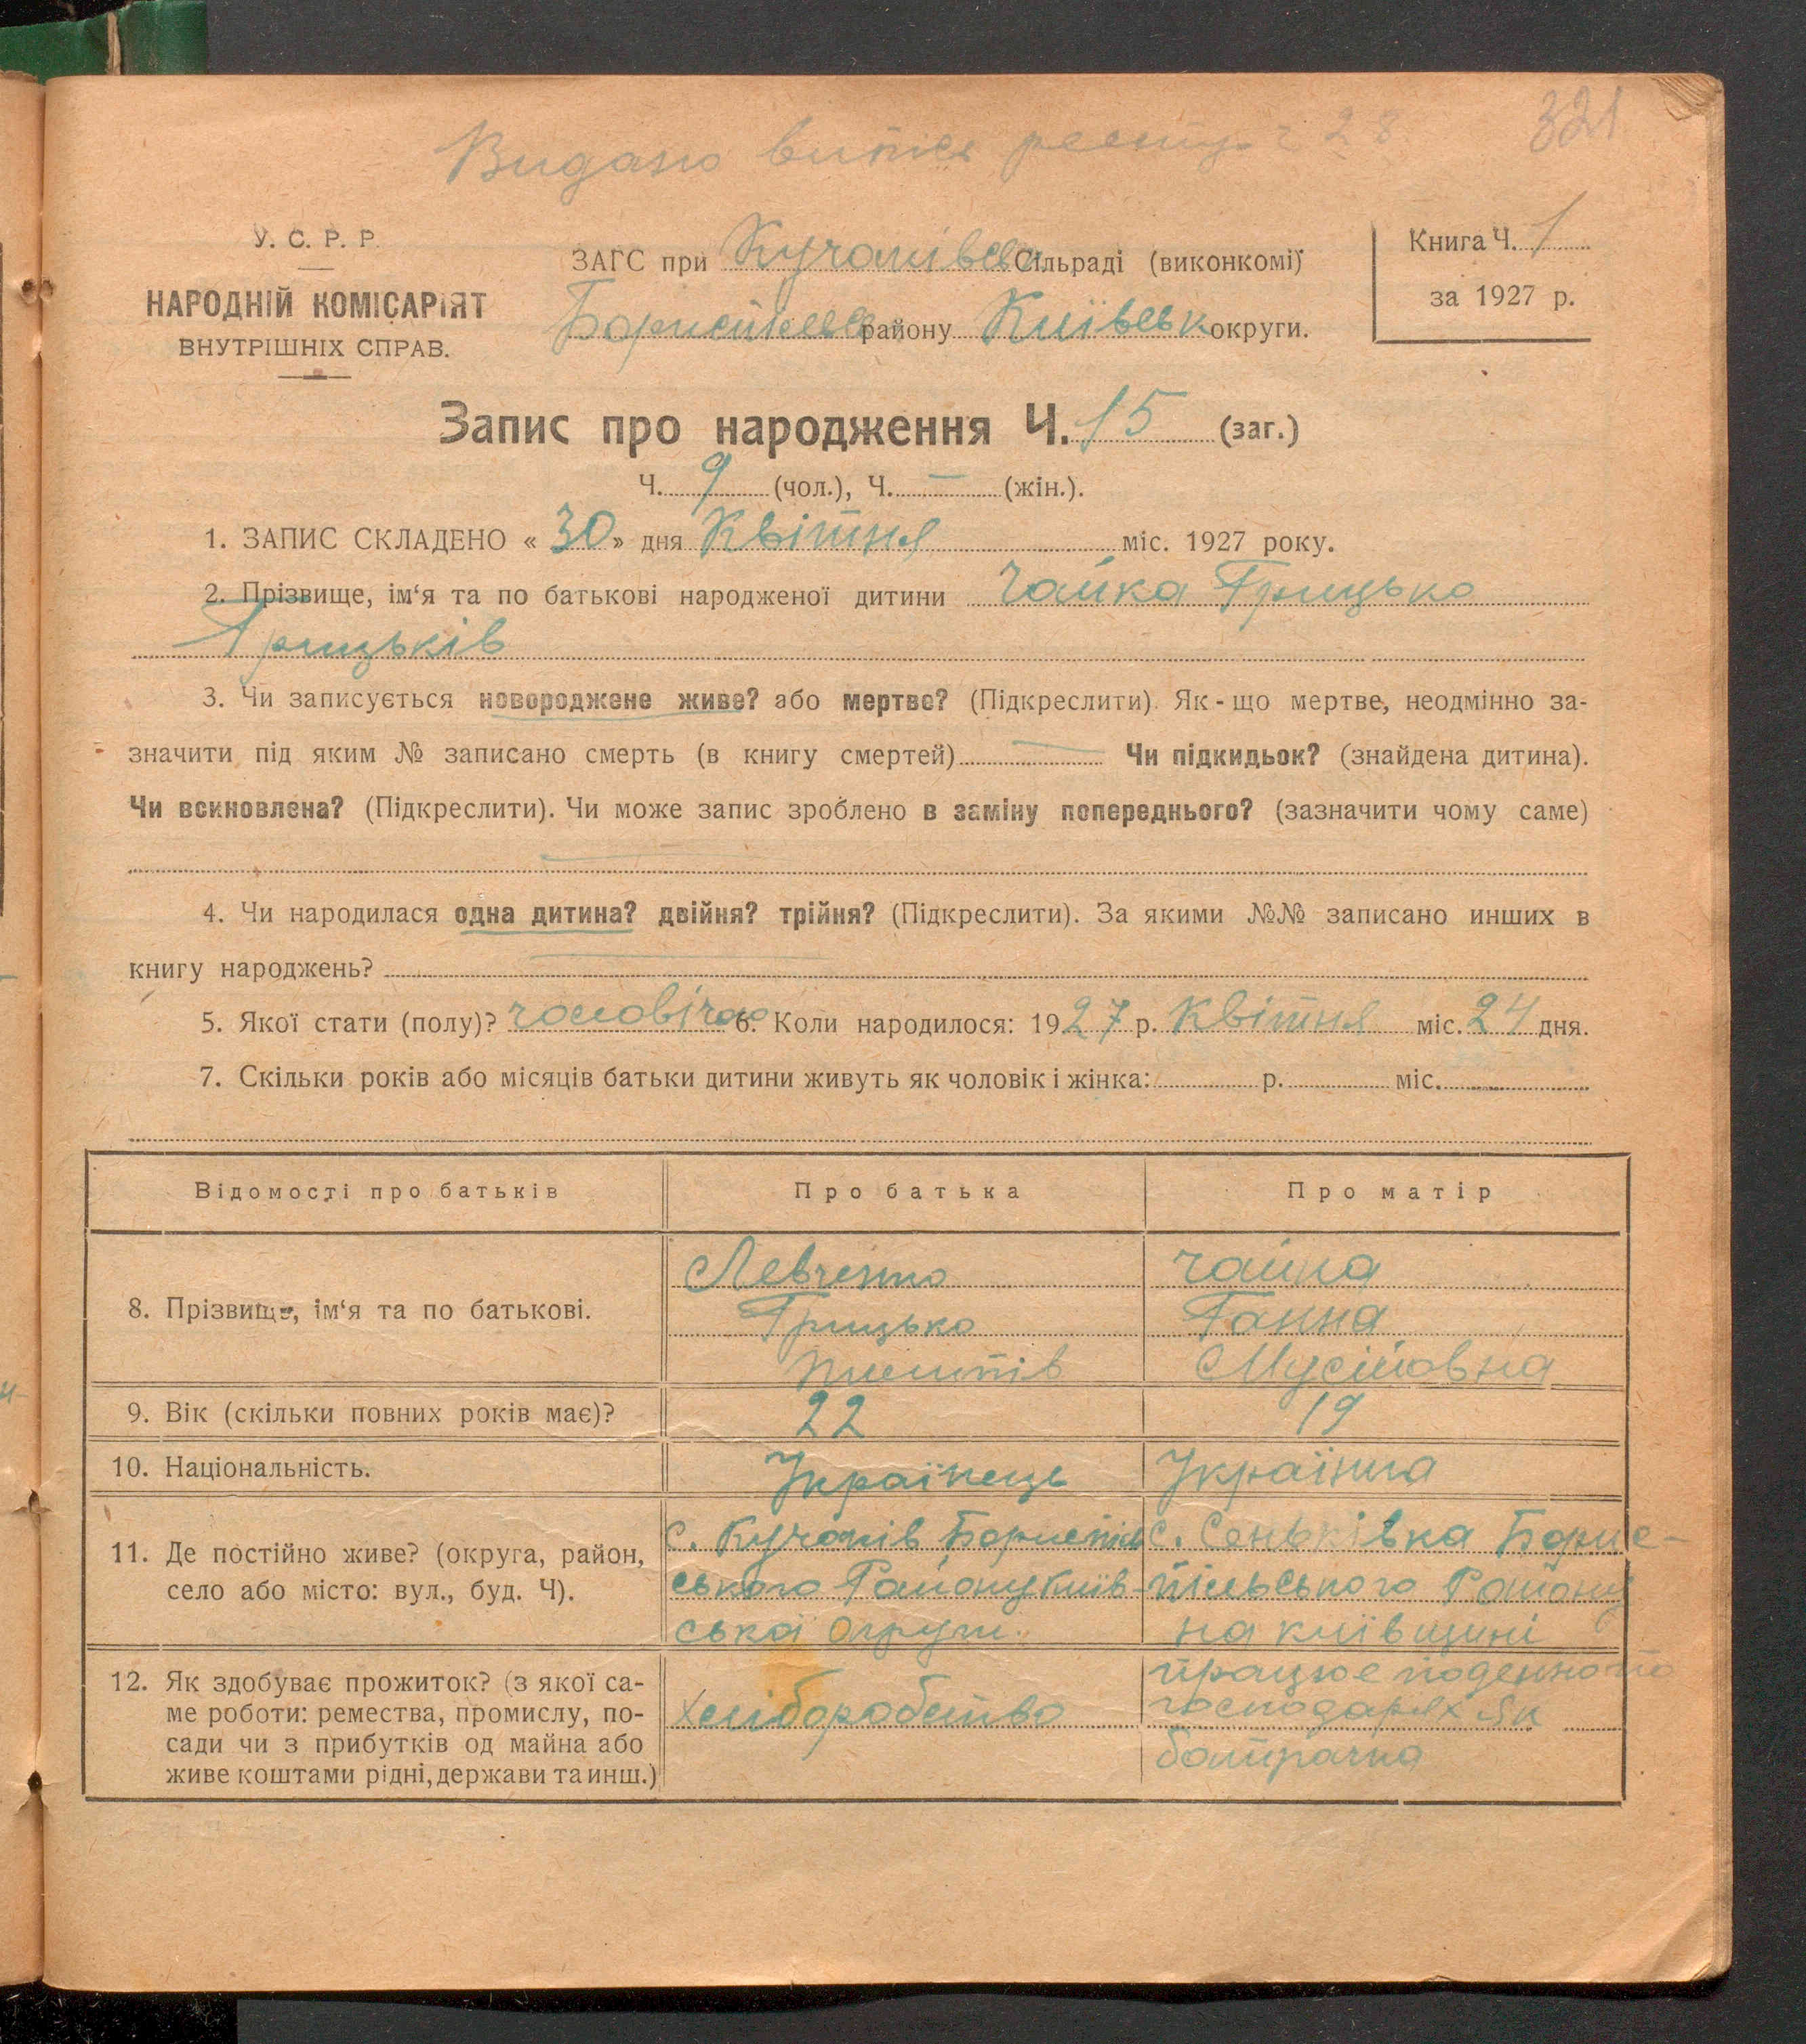 321
Видано витяг реєстр. ч 28
У. С. Р. Р.
НАРОДНІЙ КОМІСАРІЯТ
ВНУТРІШНІХ СПРАВ.
ЗАГС при Кучаківськ Сільраді (виконкомі)
Бориспільськ району Київськ округи.
Книга Ч. 1
за 1927 р.
Запис про народження Ч. 15 (заг.)
Ч. 9 (чол.), Ч. — (жін.).
1. ЗАПИС СКЛАДЕНО « 30 » дня Квітня міс. 1927 року.
2. Прізвище, ім‘я та по батькові народженої дитини Чайка Грицько
Грицьків
3. Чи записується новороджене живе? або мертве? (Підкреслити). Як-що мертве, неодмінно за-
значити під яким № записано смерть (в книгу смертей) — Чи підкидьок? (знайдена дитина).
Чи всиновлена? (Підкреслити). Чи може запис зроблено в заміну попереднього? (зазначити чому саме)
4. Чи народилася одна дитина? двійня? трійня? (Підкреслити). За якими №№ записано инших в
книгу народжень?
5. Якої стати (полу)? чоловічої 6. Коли народилося: 1927 р. Квітня міс. 24 дня.
7. Скільки років або місяців батьки дитини живуть як чоловік і жінка: р. міс.
Відомості про батьків Про батька Про матір
8. Прізвище, ім‘я та по батькові.
Левченко
Грицько
Пилипів
Чайка
Ганна
Мусіївна
9. Вік (скільки повних років має)? 22 19
10. Національність. Українець Українка
11. Де постійно живе? (округа, район,
село або місто: вул., буд. Ч).
с. Кучаків Бориспіль
ського Району Київ-
ської округи.
с. Сеньківка Борис-
пільського Району
на київщині
12. Як здобуває прожиток? (з якої са-
ме роботи: ремества, промислу, по-
сади чи з прибутків од майна або
живе коштами рідні, держави та инш.)
Хліборобство
працює поденно по
господарях як
батрачка